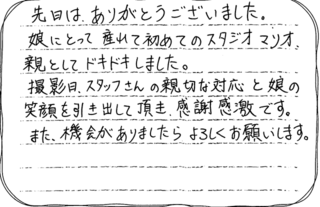 先日は、ありがとうございました。
娘にとって産れて初めてのスタジオマリオ、
親としてドキドキしました。
撮影日、スタッフさんの親切な対応と娘の
笑顔を引き出して頂き、感謝感激です。
また、機会がありましたらよろしくお願いします。